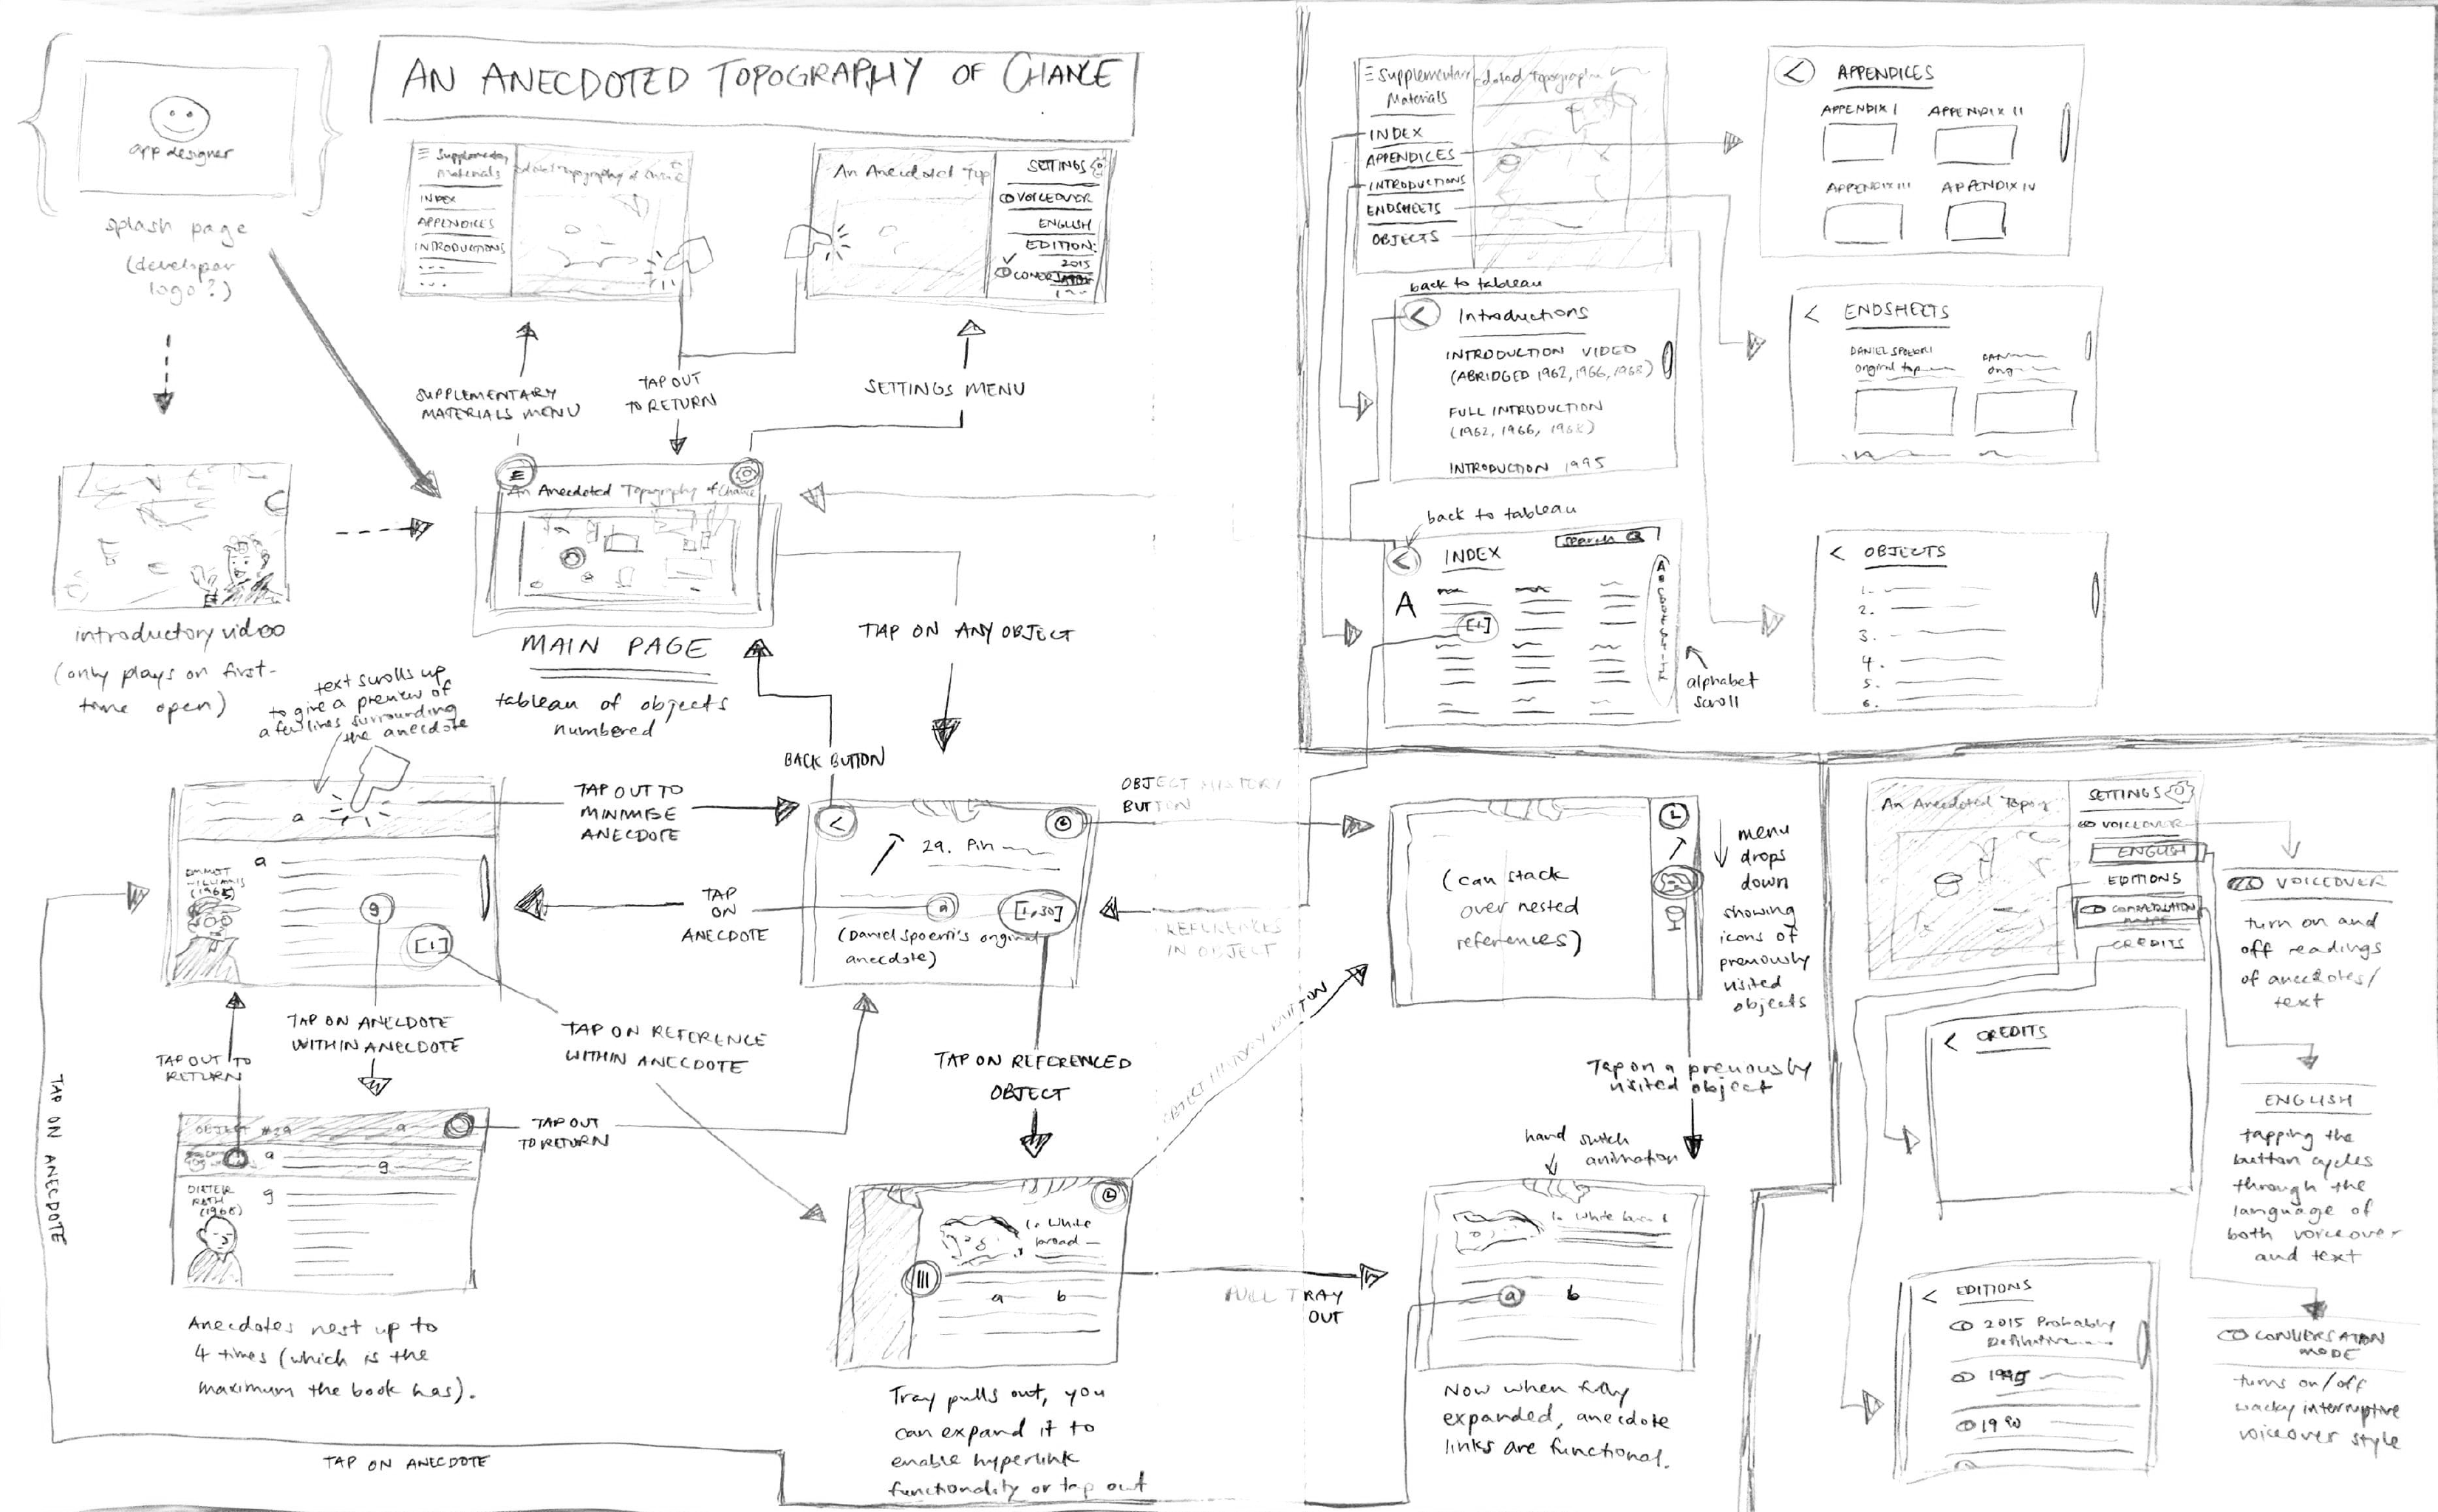 AN ANECDOTED TOPOGRAPHY OF CHANCE
app designer
splash page
(developer
logo?)
Supplementary
Materials
INDEX
APPENDICES
INTRODUCTIONS
Topography of Chance
An Anecdoted Top
SETTINGS
VOICEOVER
ENGLISH
EDITION:
2015
SUPPLEMENTARY
MATERIALS MENU
TAP OUT
TO RETURN
SETTINGS MENU
An Anecdoted Topography of Chance
MAIN PAGE
tableau of objects
numbered
introductory video
(only plays on first-
time open)
TAP ON ANY OBJECT
BACK BUTTON
text scrolls up
to give a preview of
a few lines surrounding
the anecdote
a
EMMETT
WILLIAMS
(1965)
a
g
[1]
TAP OUT TO
MINIMISE
ANECDOTE
TAP
ON
ANECDOTE
29. Pin
a
[1,30]
(Daniel Spoerri's original
anecdote)
OBJECT HISTORY
BUTTON
REFERENCES
IN OBJECT
TAP OUT TO
RETURN
TAP ON ANECDOTE
WITHIN ANECDOTE
TAP ON REFERENCE
WITHIN ANECDOTE
TAP ON REFERENCED
OBJECT
OBJECT HISTORY BUTTON
OBJECT #29
a
a
g
DIETER
ROTH
(1968)
g
TAP OUT
TO RETURN
Anecdotes nest up to
4 times (which is the
maximum the book has).
TAP ON ANECDOTE
TAP ON ANECDOTE
1. White
bread
a b
Tray pulls out, you
can expand it to
enable hyperlink
functionality or tap out
PULL TRAY
OUT
(can stack
over nested
references)
menu
drops
down
showing
icons of
previously
visited
objects
Tap on a previously
visited object
hand switch
animation
1. White
a b
Now when fully
expanded, anecdote
links are functional.
Supplementary
Materials
INDEX
APPENDICES
INTRODUCTIONS
ENDSHEETS
OBJECTS
< APPENDICES
APPENDIX I APPENDIX II
APPENDIX III APPENDIX IV
back to tableau
< Introductions
INTRODUCTION VIDEO
(ABRIDGED 1962, 1966, 1968)
FULL INTRODUCTION
(1962, 1966, 1968)
INTRODUCTION 1995
< ENDSHEETS
DANIEL SPOERRI
original
back to tableau
< INDEX
search
A
[1]
alphabet
scroll
< OBJECTS
1.
2.
3.
4.
5.
6.
An Anecdoted Topog
SETTINGS
VOICEOVER
ENGLISH
EDITIONS
CONVERSATION
CREDITS
VOICEOVER
turn on and
off readings
of anecdotes/
text
< CREDITS
ENGLISH
tapping the
button cycles
through the
language of
both voiceover
and text
< EDITIONS
2015 Probably
Definitive
1995
1990
CONVERSATION
MODE
turns on/off
wacky interruptive
voiceover style